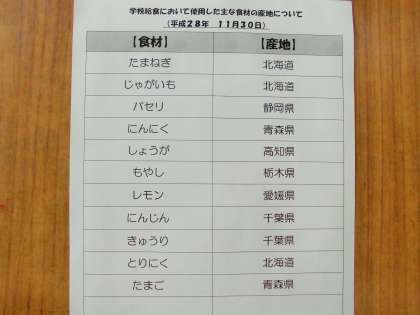 学校給食において使用した主な食材の産地について
(平成28年 11月30日)
【食材】 【産地】
たまねぎ 北海道
じゃがいも 北海道
パセリ 静岡県
にんにく 青森県
しょうが 高知県
もやし 栃木県
レモン 愛媛県
にんじん 千葉県
きゅうり 千葉県
とりにく 北海道
たまご 青森県